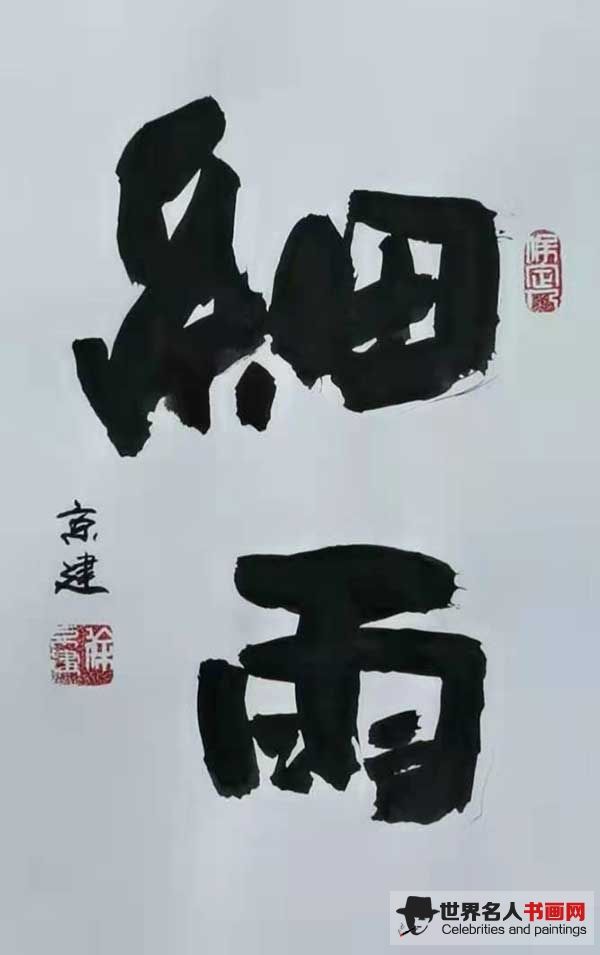 細
雨
京建
世界名人书画网
Celebrities and paintings